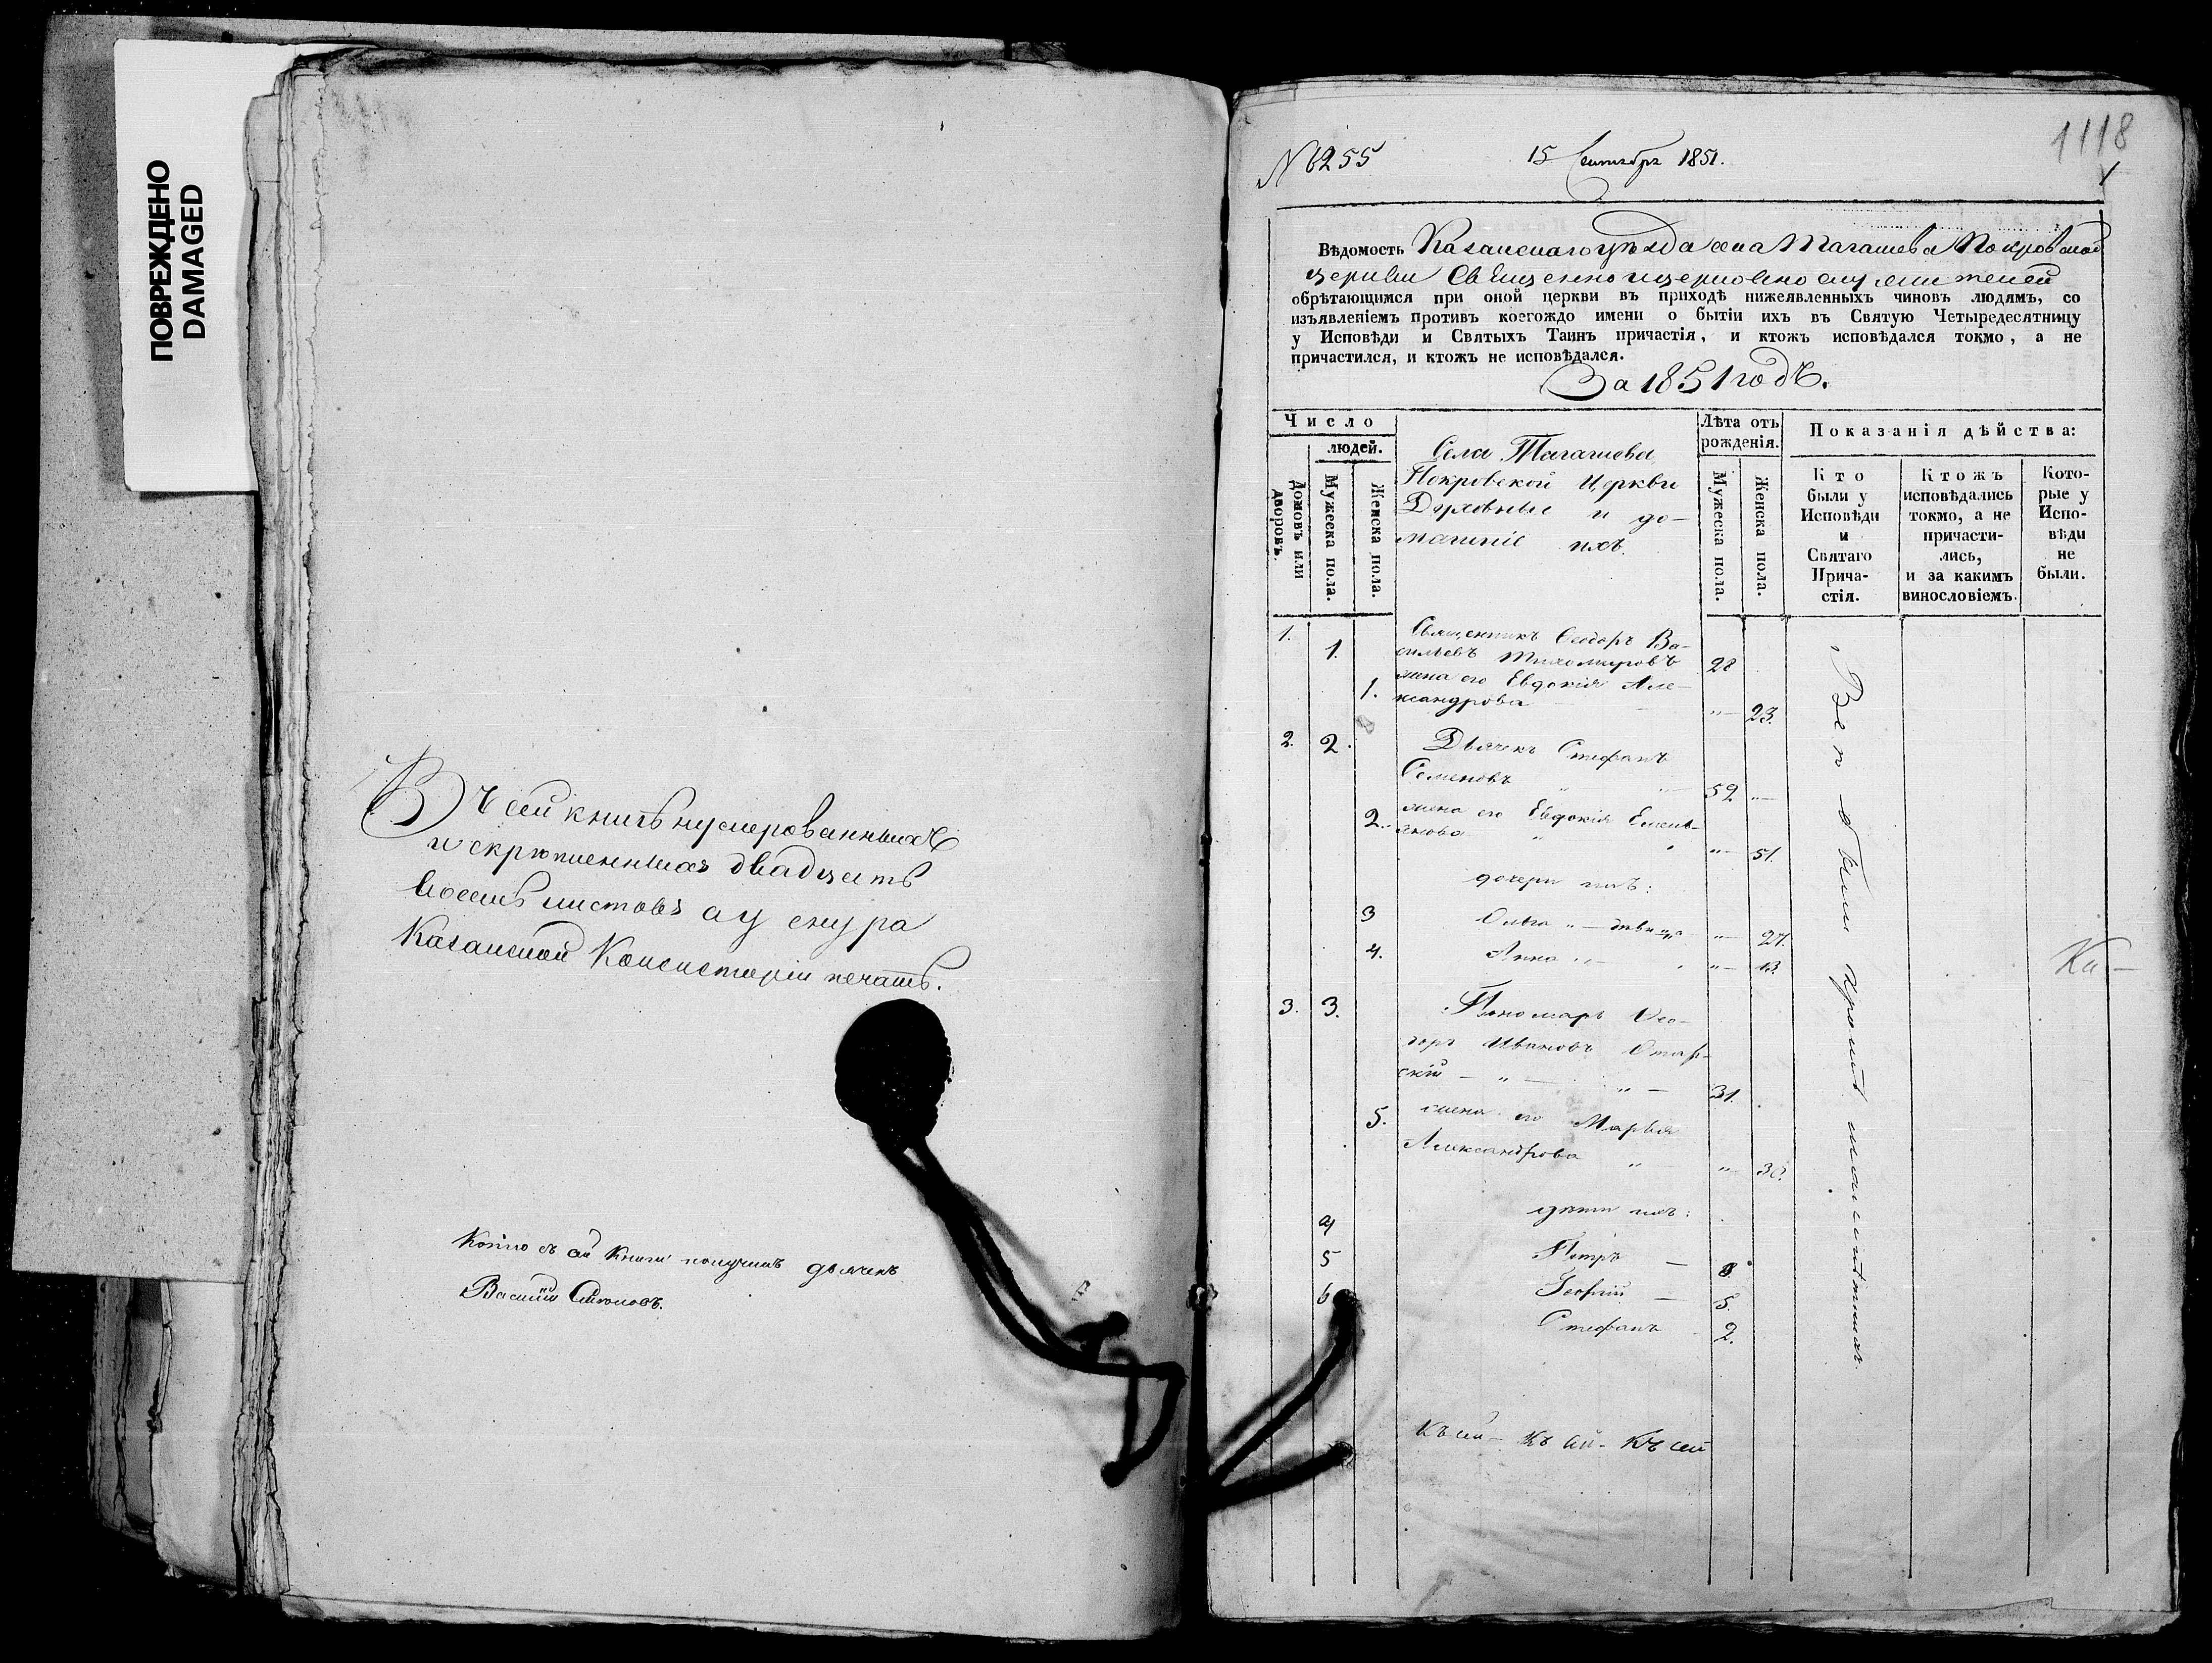 ПОВРЕЖДЕНО
DAMAGED
Въ сей книгѣ нумерованныхъ
и скрѣпленныхъ двадцать
восемь листовъ а у снура
Казанской Консисторіи печать.
Копію съ сей книги получилъ дьячекъ
Василій
№ 6255
15 Сентября 1851.
1118
1
Вѣдомость Казанскаго уѣзда села Тагашева Покровской
церкви Священноцерковнослужителей
обрѣтающимся при оной церкви въ приходѣ нижеявленныхъ чиновъ людямъ, со
изъявленіемъ противъ коегождо имени о бытіи ихъ въ Святую Четыредесятницу
у Исповѣди и Святыхъ Таинъ причастія, и ктожъ исповѣдался токмо, а не
причастился, и ктожъ не исповѣдался.
За 1851 годъ.
Число
людей.
Домовъ или дворовъ.
Мужеска пола.
Женска пола.
Села Тагашева
Покровской Церкви
Духовные и до-
машніе ихъ.
Лѣта отъ
рожденія.
Мужеска пола.
Женска пола.
Показанія дѣйства:
Кто
были у
Исповѣди
и
Святаго
Прича-
стія.
Ктожъ
исповѣдались
токмо, а не
причасти-
лись,
и за какимъ
винословіемъ.
Кото-
рые у
Испо-
вѣди
не
были.
1. 1. Священникъ Ѳеодоръ Ва-
сильевъ Тихомировъ 28
1. жена его Евдокія Але-
ксандрова " 23.
2. 2. Дьячекъ Стефанъ
Семеновъ 52 "
2. жена его Евдокія Емель-
янова " 51.
дочери ихъ:
3 Ольга " — дѣвица " 27.
4. Анна " — " 13.
3. 3. Пономарь Ѳео-
доръ Ивановъ
скій — " — " — 31.
5. жена его Марья
Александрова " — " 30.
дѣти ихъ:
4 Петръ — 8
5 Георгій — 5.
6 Стефанъ 2.
Всѣ были кромѣ малолѣтнихъ.
Ка —
Къ сей — Къ сей — Къ сей